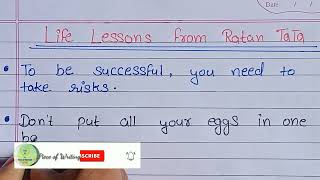 Date / /
Life Lessons from Ratan Tata
• To be successful, you need to
take risks.
• Don't put all your eggs in one
ba
Piece of Writing
SCRIBE